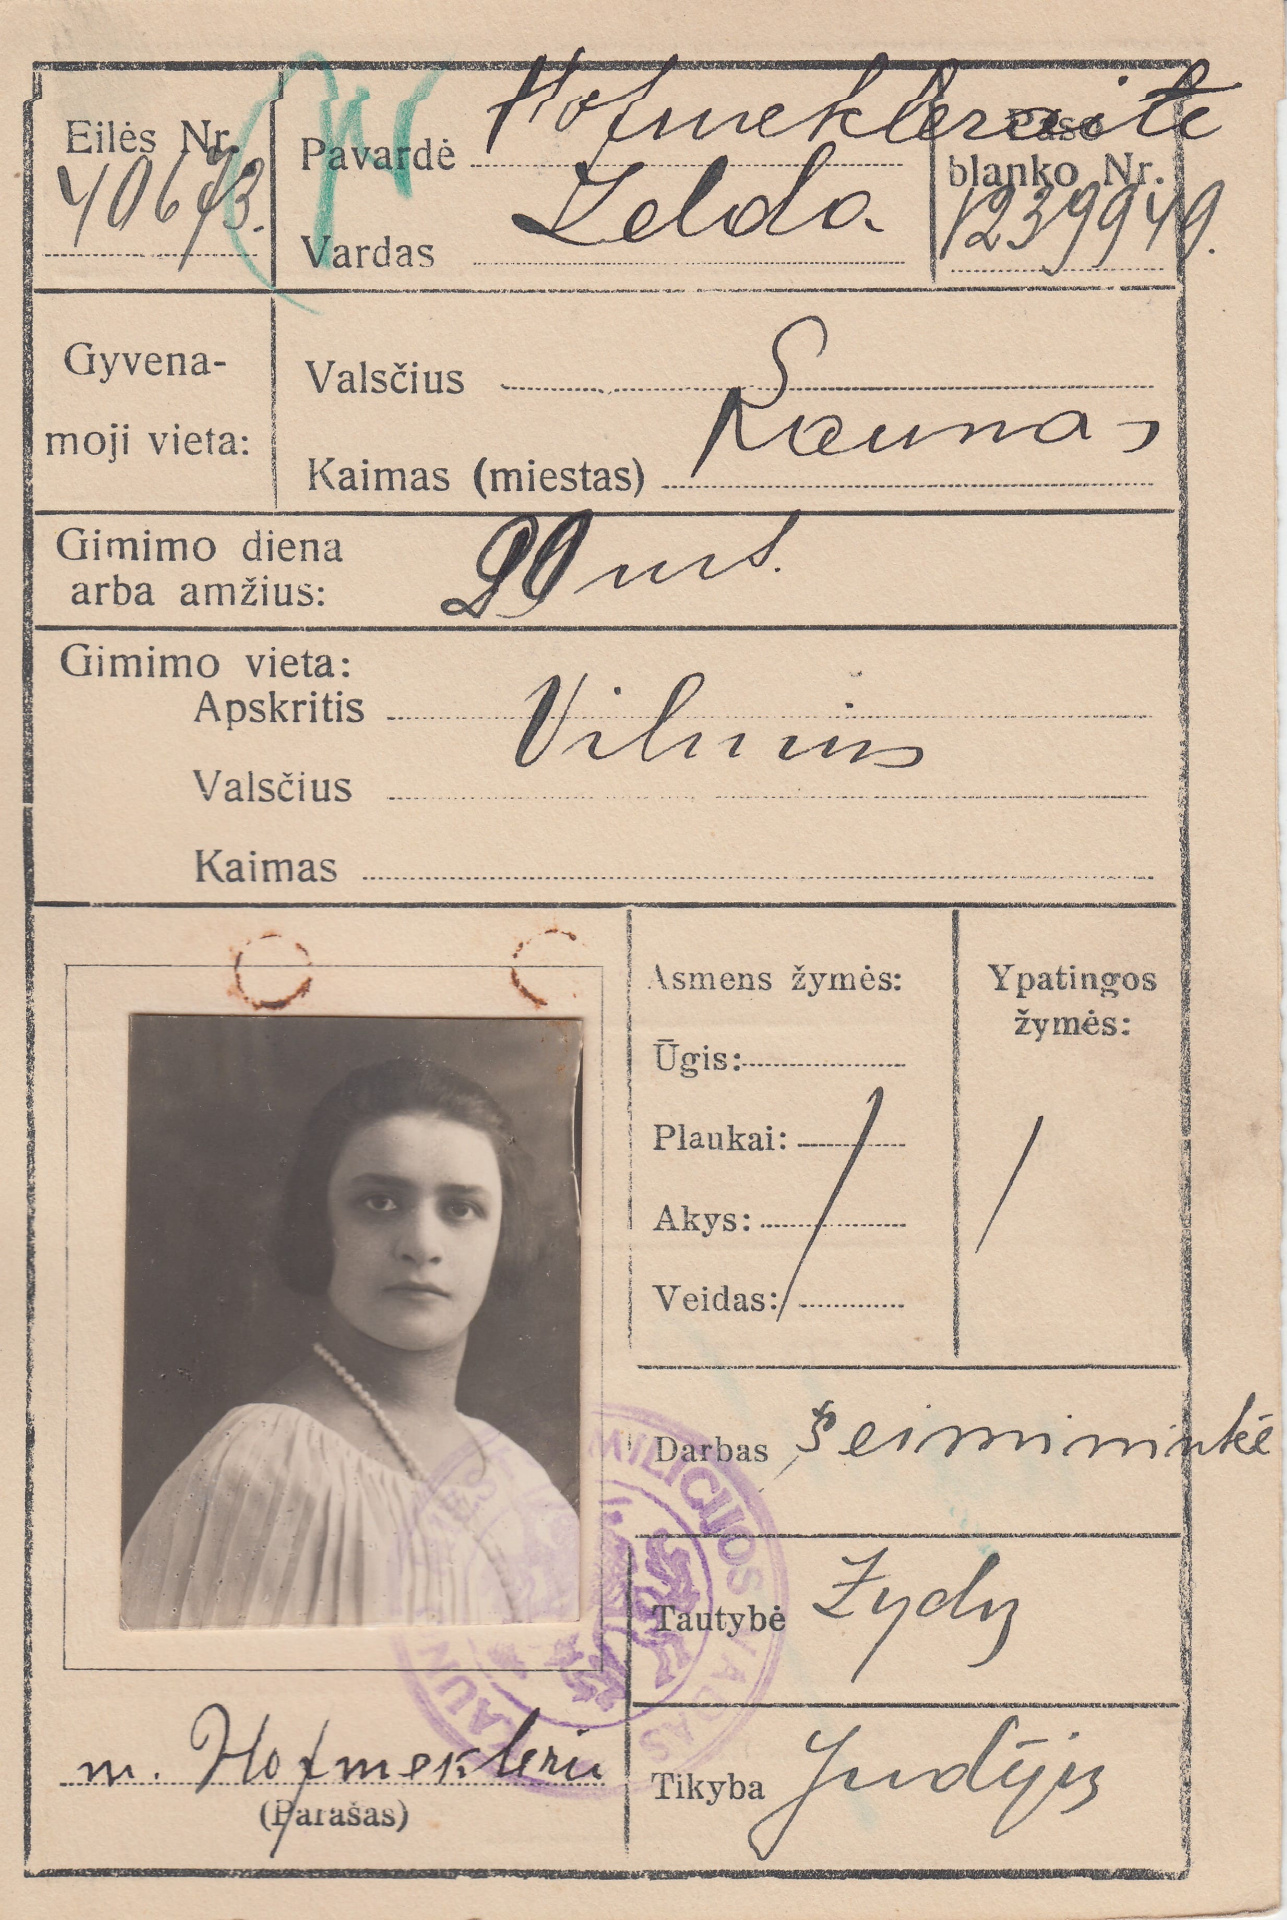 Eilės Nr. 40673.
Pavardė Hofmekleraitė
Vardas Zelda
Paso
blanko Nr.
1239949.
Gyvena-
moji vieta:
Valsčius
Kaimas (miestas) Kaunas
Gimimo diena
arba amžius:
20 m
Gimimo vieta:
Apskritis Vilnius
Valsčius
Kaimas
Asmens žymės:
Ūgis:
Plaukai:
Akys:
Veidas:
Ypatingos
žymės:
Darbas Šeimininkė
Tautybė Žydų
Tikyba Judėjų
m. Hofmeklerių
(Parašas)
MILICIJOS VADAS KAUN